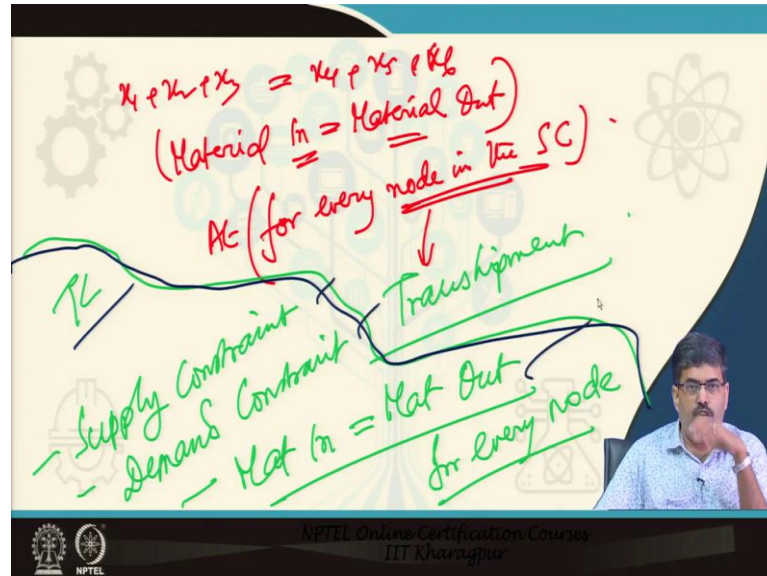 x₁ + x₂ + x₃ = x₄ + x₅ + x₆
(Material In = Material Out)
At (for every node in the SC)
Transhipment
- Supply Constraint
- Demand Constraint
- Mat In = Mat Out
for every node
NPTEL Online Certification Courses
IIT Kharagpur
NPTEL